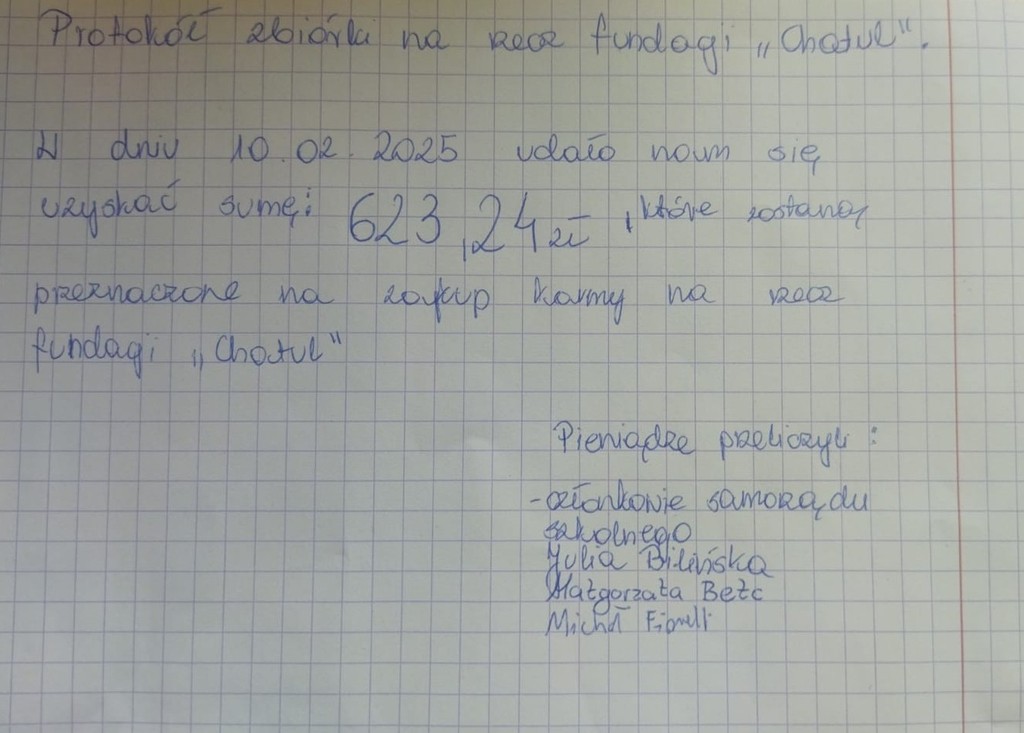 Protokół zbiórki na rzecz fundacji „Chatul".
W dniu 10.02.2025 udało nam się
uzyskać sumę: 623,24 zł, które zostaną
przeznaczone na zakup karmy na rzecz
fundacji „Chatul"
Pieniądze przeliczyli:
- członkowie samorządu
szkolnego
Julia Bilińska
Małgorzata Bełc
Michał